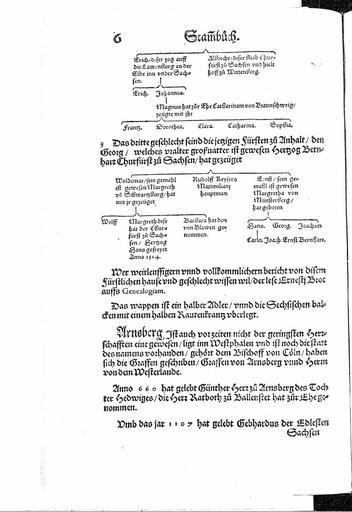 6 Stambůch.
Erich / diser zog auff
die Lawenburg an der
Elbe inn vnder Sach-
sen.
Albrecht / diser blieb Chur-
fürst zů Sachsen vnd hielt
hoff zů Wittenberg.
Erich. Johannes.
Magnus hat zůr Ehe Catharinam von Braunschweig /
zeügte mit jhr
Frantz. Dorothea. Clara. Catharina. Sophia.
3 Das dritte geschlecht seind die jenigen Fürsten zů Anhalt / den
Georg / welches vralter großvatter ist gewesen Hertzog Bern-
hart Churfürst zů Sachsen / hat gezeüget
Woldemar / sein gemähl
ist gewesen Margreth
vō Schwartzburg / hat
mit jr gezeüget
Rudolff Keysers
Maximiliani
hauptman.
Ernst / sein ge-
mahl ist gewesen
Margretha von
Münsterberg /
hat geboren
Wolff
Margreth dise
hat der Chur-
fürst zů Sach-
sen / Hertzog
Hans gefreyet
Anno 1514.
Barbara hat den
von Plawen ge-
nommen.
Hans. Georg. Joachim.
Carln. Joach. Ernst. Bernhart.
Wer weitleuffigern vnnd vollkommlichern bericht von disem
Fürstlichen hause vnd geschlecht wissen wil / der lese Ernesti Brot
auffs Genealogiam.
Das wappen ist ein halber Adler / vnnd die Sechsischen bal-
cken mit einem halben Rautenkrang vberlegt.
Arnsberg / ist auch vor zeiten nicht der geringsten Herr-
schafften eine gewesen / ligt inn Westphalen vnd ist noch die statt
des namens vorhanden / gehört dem Bischoff von Cöln / haben
sich die Graffen geschriben / Graffen von Arnsberg vnnd Herrn
von dem Westerlande.
Anno 660 hat gelebt Günther Herr zů Arnsberg des Toch
ter Hedwiges / die Herr Ratboth zů Ballenstet hat zůr Ehe ge-
nommen.
Vmb das jar 1107 hat gelebt Gebhardus der Edlesten
Sachsen